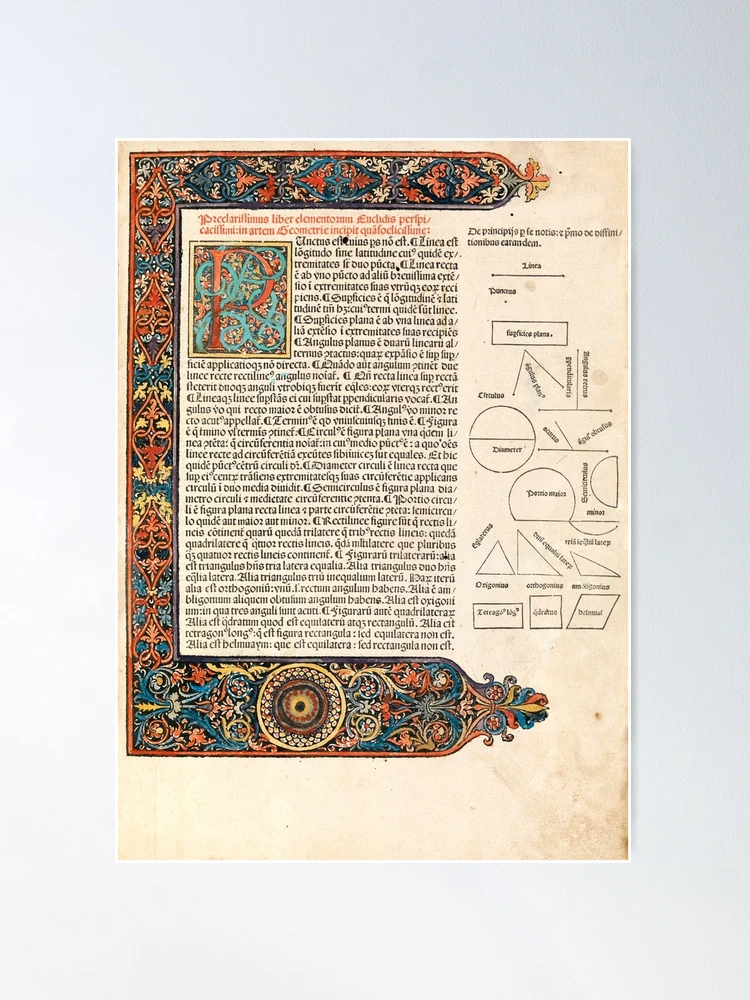 Preclarissimus liber elementorum Euclidis perspi/
cacissimi: in artem Geometrie incipit quãfoelicissime:
Punctus est cuius ps nõ est. ¶Linea est
lõgitudo sine latitudine cuiꝰ quidẽ ex/
tremitates st duo pũcta. ¶Linea recta
ẽ ab vno pũcto ad aliũ breuissima extẽ/
sio i extremitates suas vtrũqꝫ eoꝝ reci
piens. ¶Supficies ẽ q̃ lõgitudinẽ ⁊ lati
tudinẽ tm̃ hꝫ: cuiꝰ termi quidẽ sũt linee.
¶Supficies plana ẽ ab vna linea ad a/
liã extẽsio i extremitates suas recipiẽs
¶Angulus planus ẽ duarũ linearũ al/
ternus ↄtactus: quaꝝ expãsio ẽ sup sup/
ficiẽ applicatioqꝫ nõ directa. ¶Quãdo aũt angulum ↄtinẽt due
linee recte rectilineꝰ angulus noiat̃. ¶Qñ recta linea sup rectã
steterit duoqꝫ anguli vtrobiqꝫ fuerit eq̃les: eoꝝ vterqꝫ rectꝰ erit
¶Lineaqꝫ linee supstãs ei cui supstat ppendicularis vocat̃. ¶An
gulus vo qui recto maior ẽ obtusus dicit̃. ¶Angulꝰ vo minor re
cto acutꝰ appellat̃. ¶Terminꝰ ẽ qd vniuscuiusqꝫ finis ẽ. ¶Figura
ẽ q̃ tmino vl terminis ↄtinet̃. ¶Circulꝰ ẽ figura plana vna qdem li/
nea ↄtẽta: q̃ circũferentia noiat̃: in cuiꝰ medio pũctꝰ ẽ: a quo oẽs
linee recte ad circũferẽtiã exeũtes sibiinuicẽ sut equales. Et hic
quidẽ pũctꝰ cẽtrũ circuli dr̃. ¶Diameter circuli ẽ linea recta que
sup eiꝰ centꝝ trãsiens extremitatesqꝫ suas circũferẽtie applicans
circulũ i duo media diuidit. ¶Semicirculus ẽ figura plana dia/
metro circuli ⁊ medietate circũferentie ↄtenta. ¶Portio circu/
li ẽ figura plana recta linea ⁊ parte circũferẽtie ↄtẽta: semicircu/
lo quidẽ aut maior aut minor. ¶Rectilinee figure sũt q̃ rectis li/
neis cõtinent̃ quarũ quedã trilatere q̃ tribꝰ rectis lineis: quedã
quadrilatere q̃ qtuor rectis lineis. qdã mltilatere que pluribus
qꝫ quatuor rectis lineis continent̃. ¶Figurarũ trilaterarũ: alia
est triangulus hñs tria latera equalia. Alia triangulus duo hñs
eq̃lia latera. Alia triangulus triũ inequalium laterũ. Haꝝ iterũ
alia est orthogoniũ: vnũ.s. rectum angulum habens. Alia ẽ am/
bligonium aliquem obtusum angulum habens. Alia est oxigoni
um: in qua tres anguli sunt acuti. ¶Figurarũ autẽ quadrilateraꝝ
Alia est qdratum quod est equilaterũ atqꝫ rectangulũ. Alia est
tetragonꝰ longꝰ: q̃ est figura rectangula: sed equilatera non est.
Alia est helmuaym: que est equilatera: sed rectangula non est.
De principijs p se notis: ⁊ pmo de diffini/
tionibus earandem.
Linea
Punctus
supficies plana.
Circulus
angulus planꝰ
ppendicularis
Angulus rectus
acutus
angꝰ obtusus
Diameter
Portio maior
Semicirculus
minor
Eqlaterus
duũ equaliũ lateꝝ
triũ ineq̃liũ lateꝝ
Oxigonius orthogonius ambligonius
Tetragonꝰ lõgꝰ
q̃dratus
helmuaī